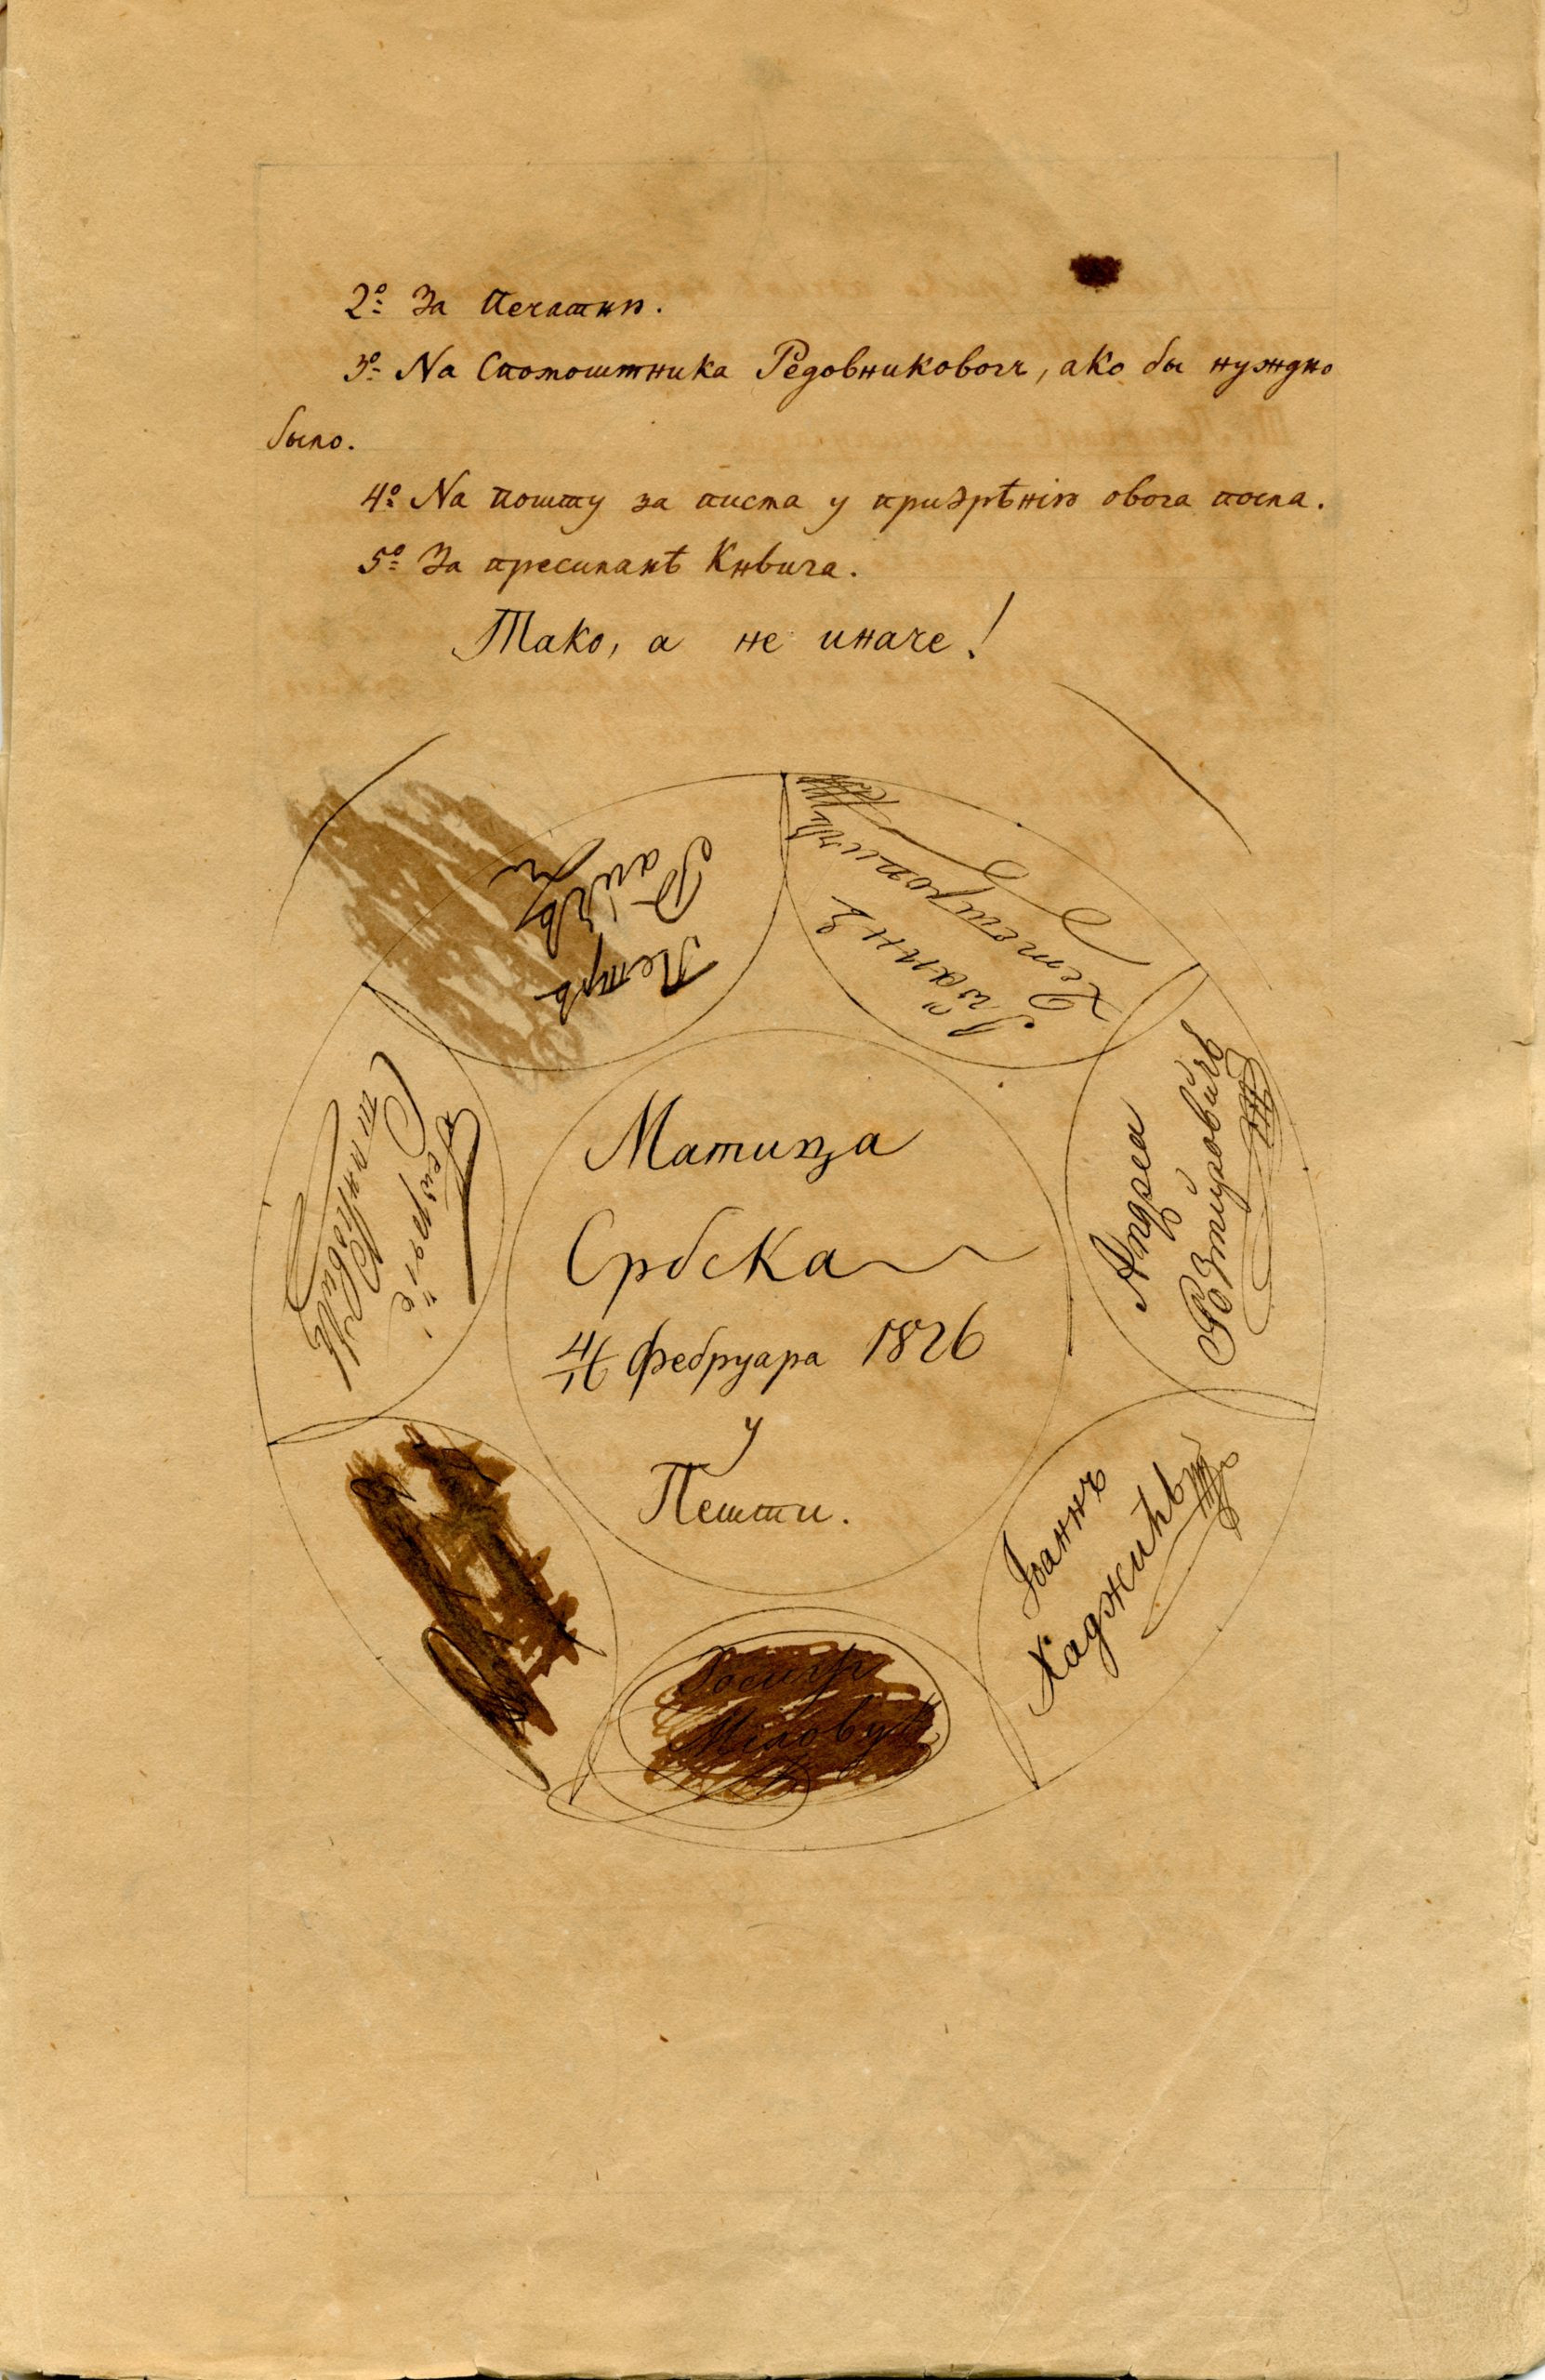 2º За Печатню.
3º На Спомоштника Редовниковогъ, ако бы нуждно
было.
4º На пошту за писма у призрѣнію овога посла.
5º За пресиланѣ Книга.
Тако, а не иначе!
Петръ
Раичъ
Іѡаннъ
Деметровичъ
Андреа
Розмировичъ
Іоаннъ
Хаджићъ
Іосифъ
Миловук
Георгіє
Станковичъ
Матица
Србска
4/16 Фебруара 1826
у
Пешти.